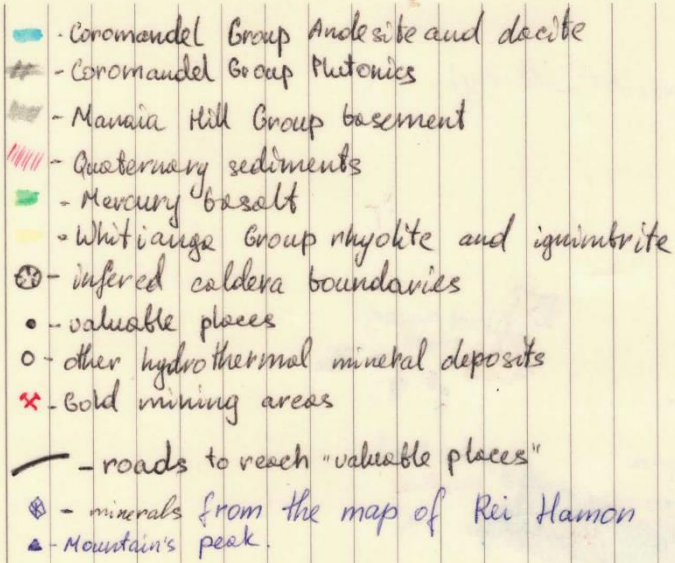 - Coromandel Group Andesite and dacite
- Coromandel Group Plutonics
- Manaia Hill Group basement
- Quaternary sediments
- Mercury basalt
- Whitianga Group rhyolite and ignimbrite
- infered caldera boundaries
- valuable places
- other hydrothermal mineral deposits
- Gold mining areas
- roads to reach "valuable places"
- minerals from the map of Rei Hamon
- Mountain's peak.